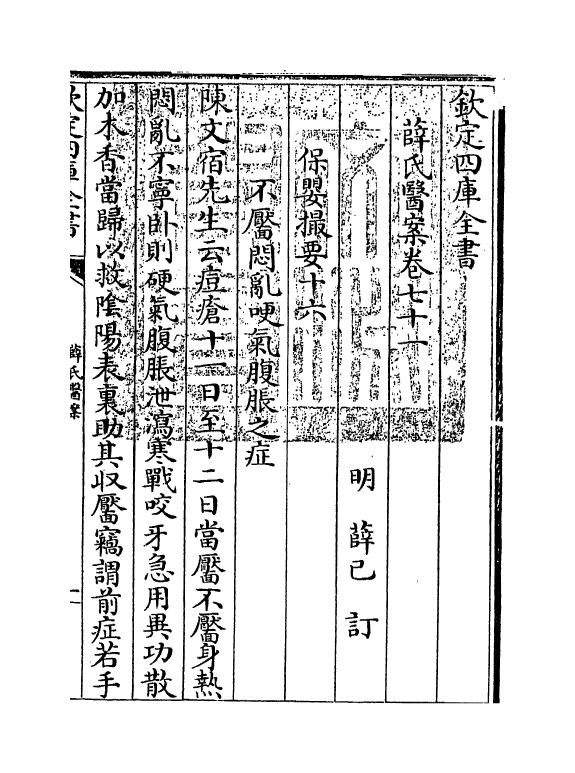 欽定四庫全書
薛氏醫案卷七十一
明 薛已 訂
保嬰撮要十六
不靨悶亂哽氣腹脹之症
陳文宿先生云痘瘡十一日至十二日當靨不靨身熱
悶亂不寧卧則哽氣腹脹泄瀉寒戰咬牙急用異功散
加木香當歸以救陰陽表裏助其収靨竊謂前症若手
欽定四庫全書
薛氏醫案
一